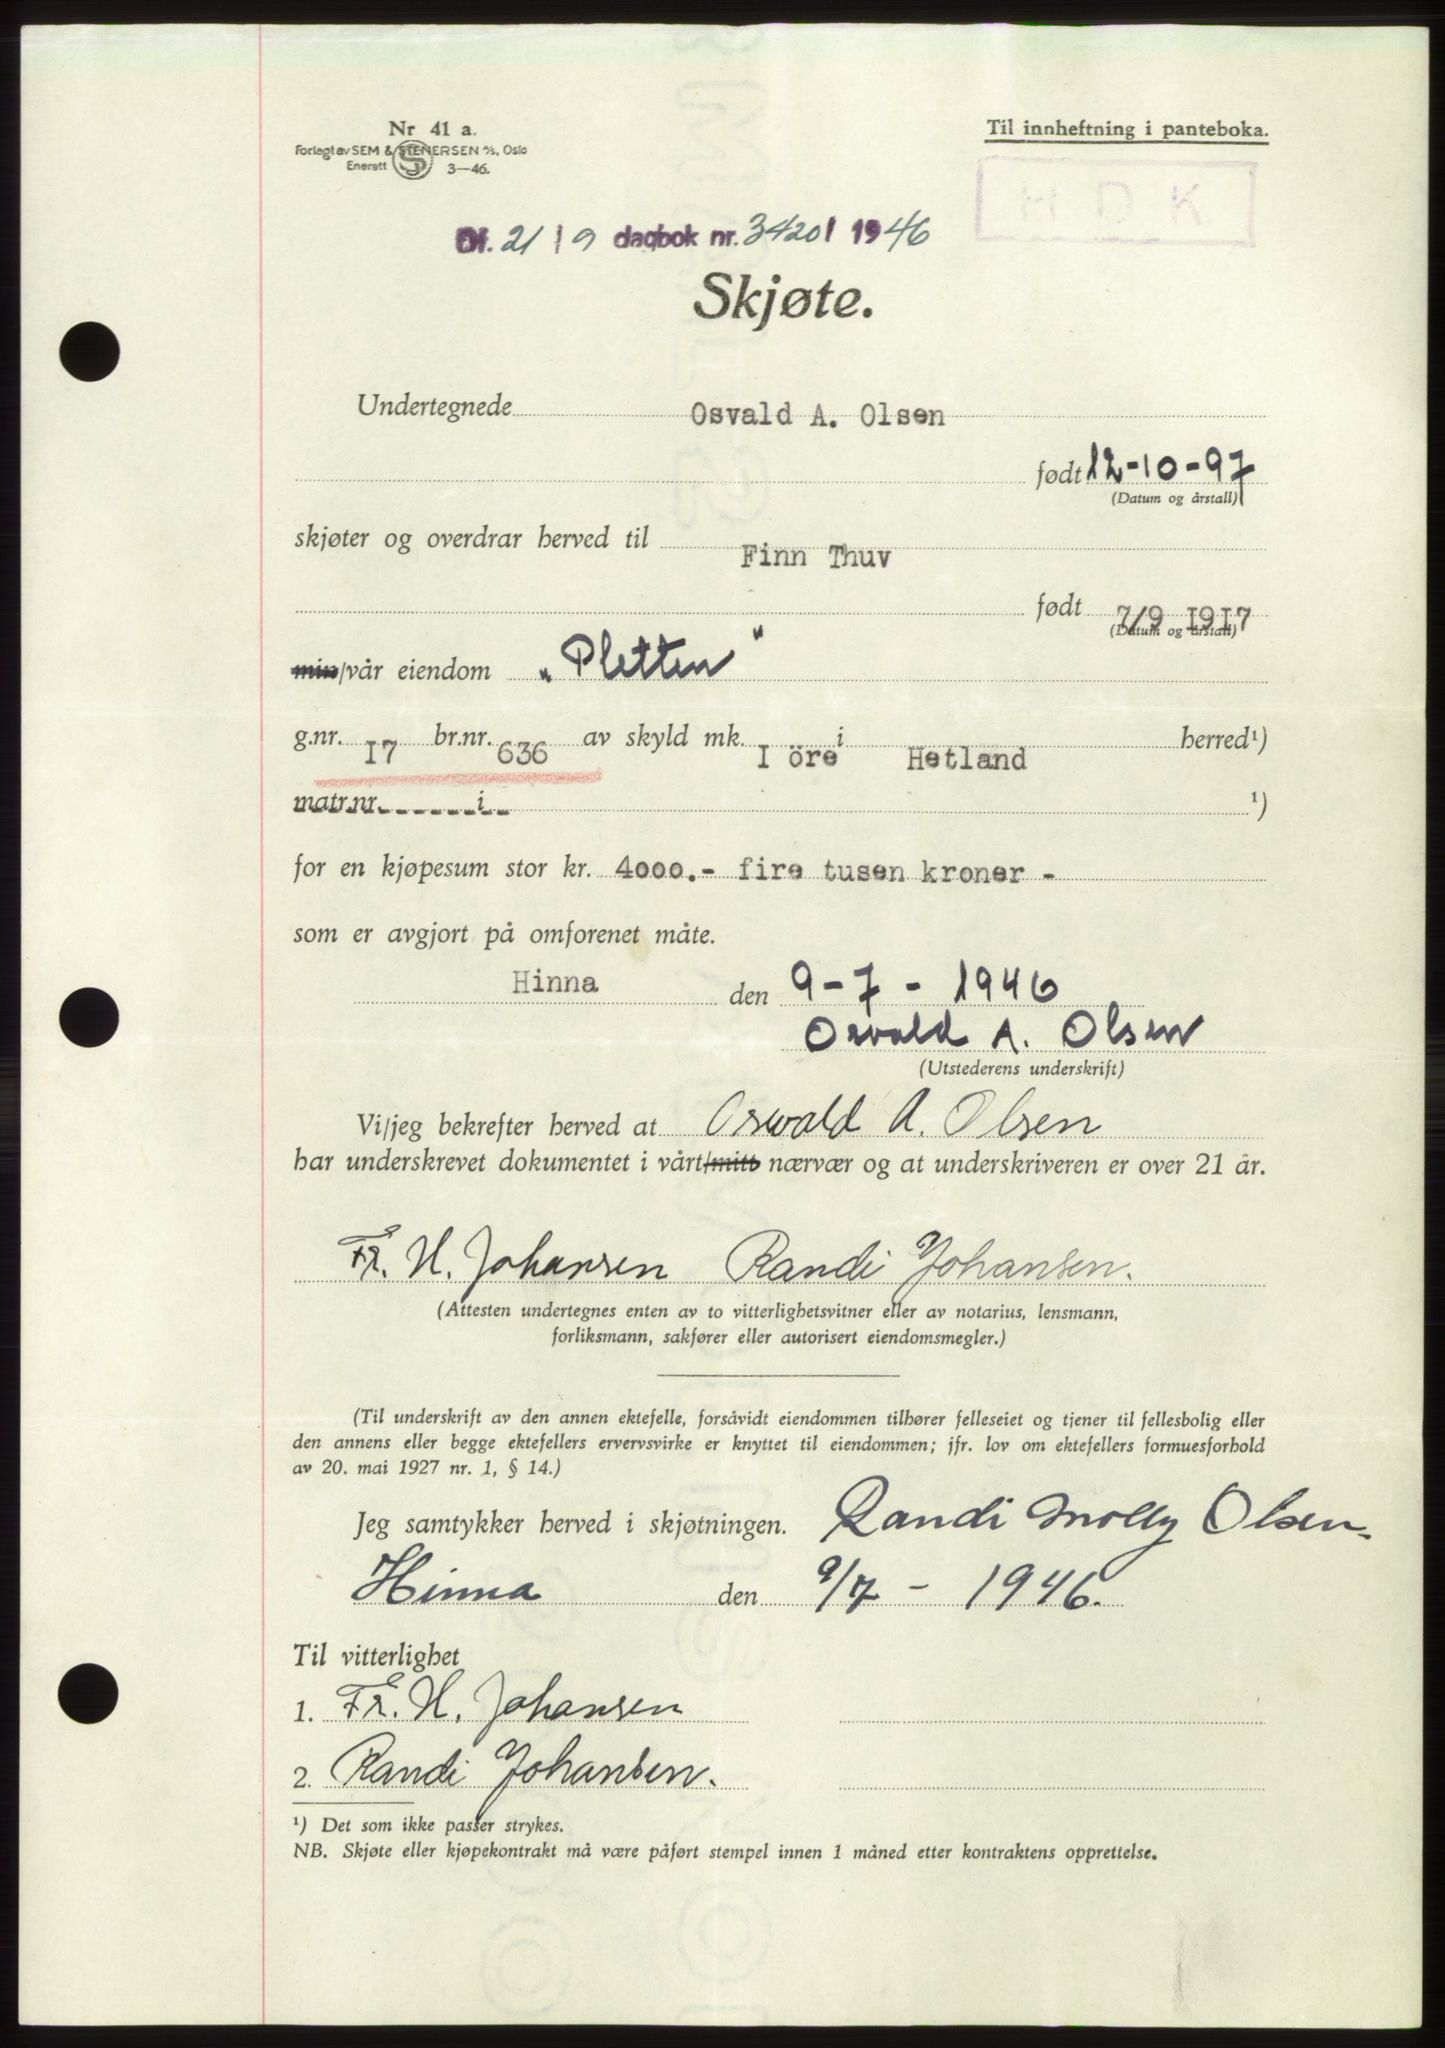 Nr 41 a.
Forlagt av SEM & STENERSEN A/S, Oslo
Enerett 3—46.
Til innheftning i panteboka.
H D K
Df. 21/9 dagbok nr. 3420/ 1946
Skjøte.
Undertegnede Osvald A. Olsen
født 12-10-97
(Datum og årstall)
skjøter og overdrar herved til Finn Thuv
født 7/9 1917
(Datum og årstall)
min/vår eiendom „Pletten"
g.nr. I7 br.nr. 636 av skyld mk. I öre i Hetland herred¹)
matr.nr. i ¹)
for en kjøpesum stor kr. 4000.- fire tusen kroner -
som er avgjort på omforenet måte.
Hinna den 9-7-1946
Osvald A. Olsen
(Utstederens underskrift)
Vi/jeg bekrefter herved at Oswald A. Olsen
har underskrevet dokumentet i vårt/mitt nærvær og at underskriveren er over 21 år.
Fr. H. Johansen Randi Johansen.
(Attesten undertegnes enten av to vitterlighetsvitner eller av notarius, lensmann,
forliksmann, sakfører eller autorisert eiendomsmegler.)
(Til underskrift av den annen ektefelle, forsåvidt eiendommen tilhører felleseiet og tjener til fellesbolig eller
den annens eller begge ektefellers ervervsvirke er knyttet til eiendommen; jfr. lov om ektefellers formuesforhold
av 20. mai 1927 nr. 1, § 14.)
Jeg samtykker herved i skjøtningen. Randi Molly Olsen.
Hinna den 9/7 - 1946.
Til vitterlighet
1. Fr. H. Johansen
2. Randi Johansen.
¹) Det som ikke passer strykes.
NB. Skjøte eller kjøpekontrakt må være påført stempel innen 1 måned etter kontraktens opprettelse.